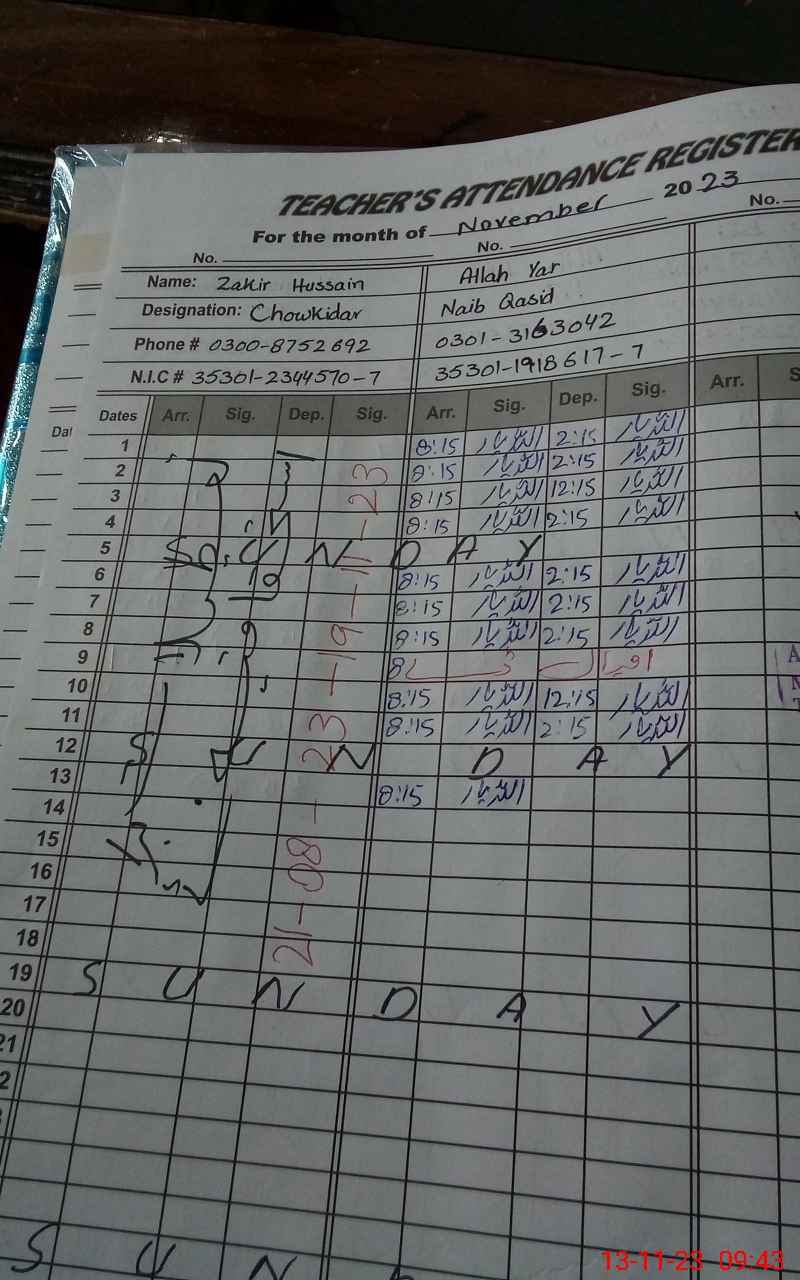 TEACHER'S ATTENDANCE REGISTER
For the month of November 2023
No. No. No.
Name: Zakir Hussain Allah Yar
Designation: Chowkidar Naib Qasid
Phone # 0300-8752692 0301-3163042
N.I.C # 35301-2344570-7 35301-1918617-7
Dates Arr. Sig. Dep. Sig. Arr. Sig. Dep. Sig. Arr. S
Dat
1 8:15 اللہ یار 2:15 اللہ یار
2 8:15 اللہ یار 2:15 اللہ یار
3 8:15 اللہ یار 12:15 اللہ یار
4 8:15 اللہ یار 2:15 اللہ یار
5 SUNDAY
6 8:15 اللہ یار 2:15 اللہ یار
7 8:15 اللہ یار 2:15 اللہ یار
8 8:15 اللہ یار 2:15 اللہ یار
9
10 8:15 اللہ یار 12:15 اللہ یار
11 8:15 اللہ یار 2:15 اللہ یار
12 SUNDAY
13 8:15 اللہ یار
14
15
16
17
18
19 SUNDAY
20
21
2
S U N
21-08-23-19-11-23
13-11-23 09:43